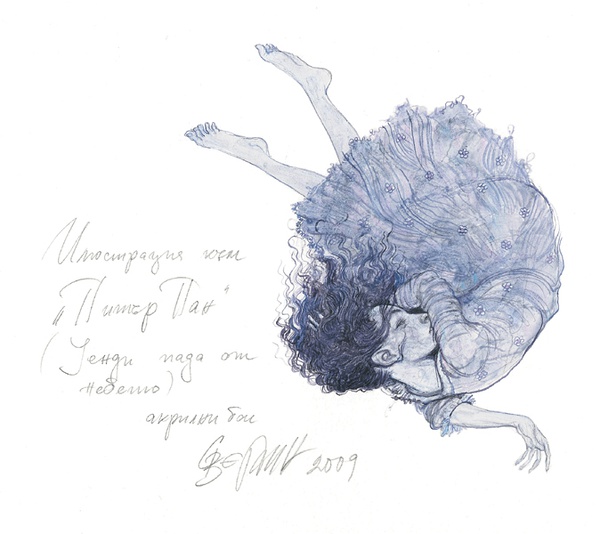 Илюстрация към
„Питър Пан"
(Уенди пада от
небето)
акрилни бои
2009